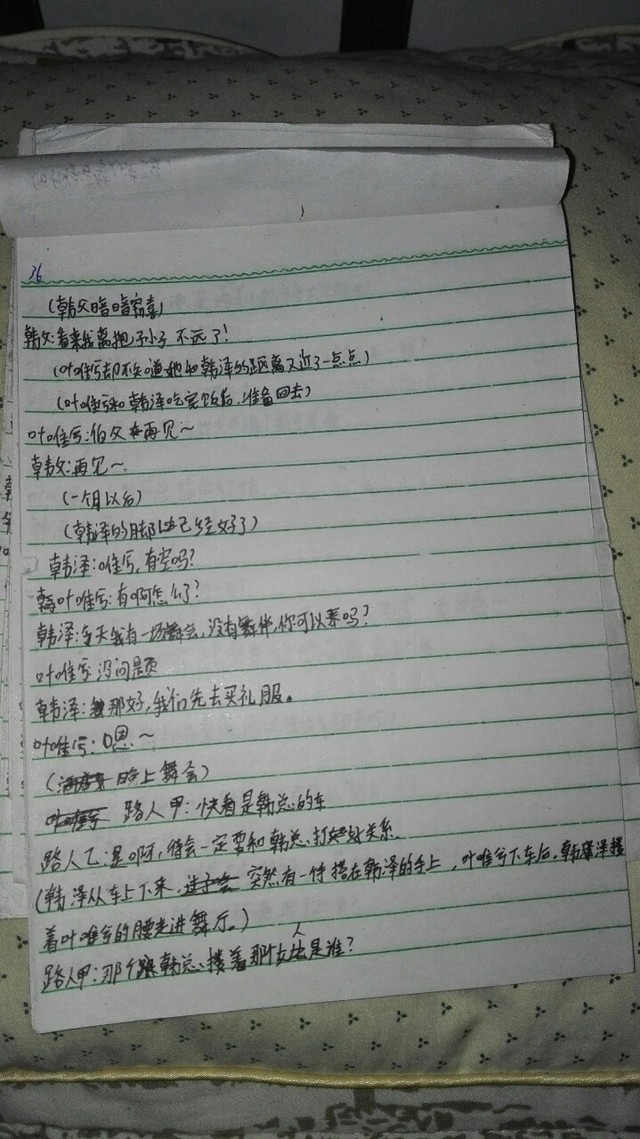 36
(韩父暗暗窃喜)
韩父:看来我离抱孙小子不远了!
(叶唯兮却不知道她和韩泽的距离又近了一点点)
(叶唯兮和韩泽吃完饭后,准备回去)
叶唯兮:伯父再见~
韩父:再见~.
(一个月以后)
(韩泽的脚已经好了)
韩泽:唯兮,有空吗?
叶唯兮:有啊怎么了?
韩泽:今天我有一场舞会,没有舞伴,你可以来吗?
叶唯兮:没问题
韩泽:那好,我们先去买礼服。
叶唯兮:嗯~
(晚上舞会)
路人甲:快看是韩总的车
路人乙:是啊,待会一定要和韩总打好关系.
(韩泽从车上下来,突然有一件搭在韩泽的手上,叶唯兮下车后,韩泽搂
着叶唯兮的腰走进舞厅。)
路人甲:那个韩总搂着那个女人是谁?